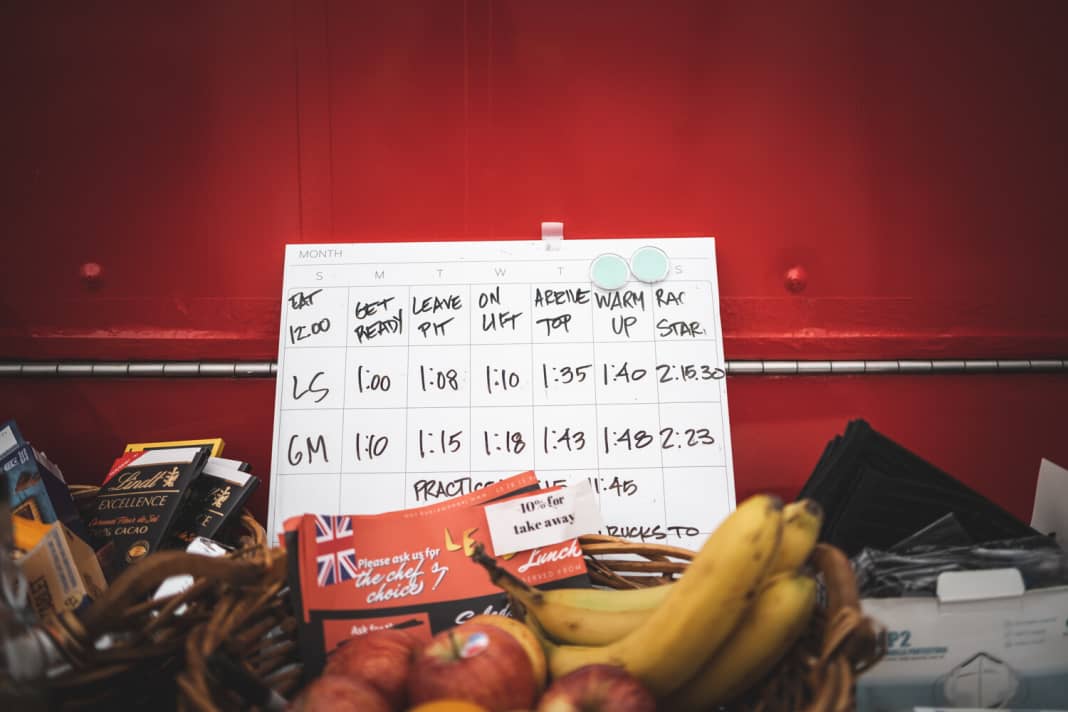 MONTH
S M T W T S
EAT 12:00
GET READY
LEAVE PIT
ON LIFT
ARRIVE TOP
WARM UP
RAC STAR
LS 1:00 1:08 1:10 1:35 1:40 2:15.30
GM 1:10 1:15 1:18 1:43 1:48 2:23
PRACTICE
:45
RUCKS TO
Lindt
EXCELLENCE
% CACAO
Please ask us for
the chef's
choice
10% for
take away
Lunch
SERVED FROM
Ask for
P2